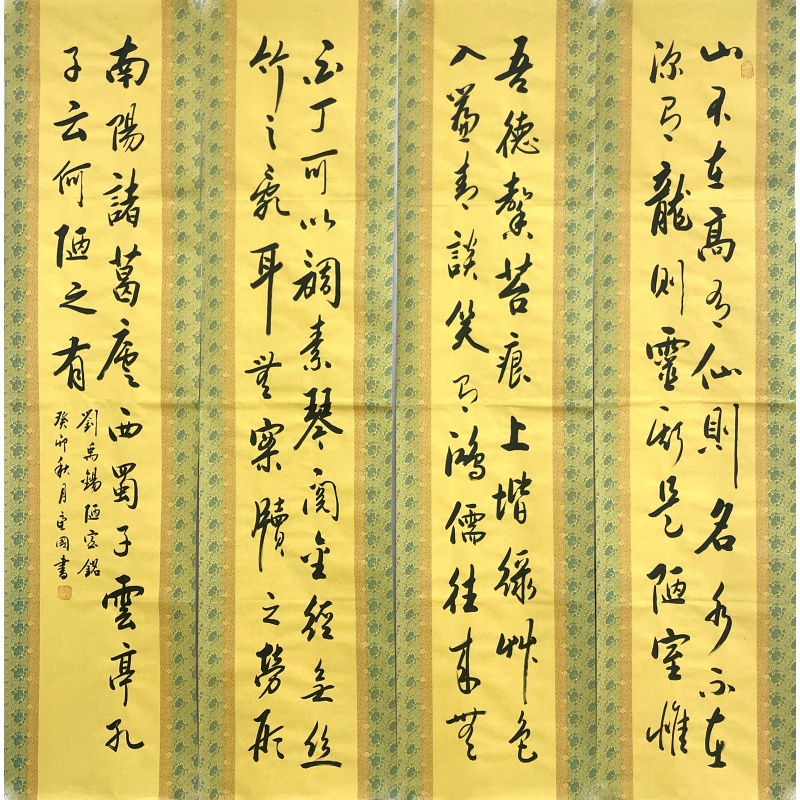 山不在高有仙則名水不在
深有龍則靈斯是陋室惟
吾德馨苔痕上堦綠艸色
入簾青談笑有鴻儒往來無
白丁可以調素琴閱金經無絲
竹之亂耳無案牘之勞形
南陽諸葛廬西蜀子雲亭孔
子云何陋之有
劉禹錫陋室銘
癸卯秋月國書